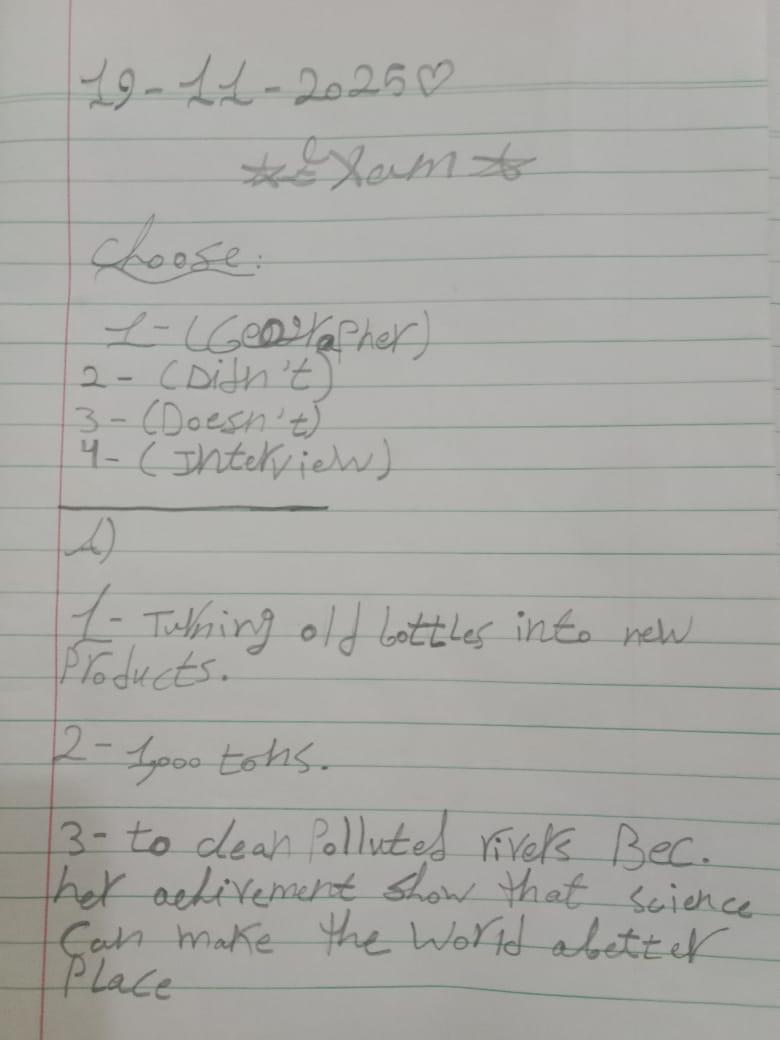 19-11-2025♡
☆Exam☆
Choose:
1-(Geographer)
2-(Didn't)
3-(Doesn't)
4-(Interview)
A)
1- Turning old bottles into new
Products.
2- 1,000 tons.
3- to clean Polluted rivers Bec.
her achivement show that science
Can make the World abetter
Place